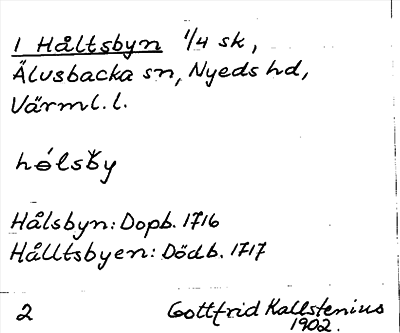 1 Håltsbyn 1/4 sk,
Älvsbacka sn, Nyeds hd,
Värml. l.
Hålsbyn: Dopb. 1716
Hålltsbyen: Dödb. 1717
2 Gottfrid Kallstenius
1902.